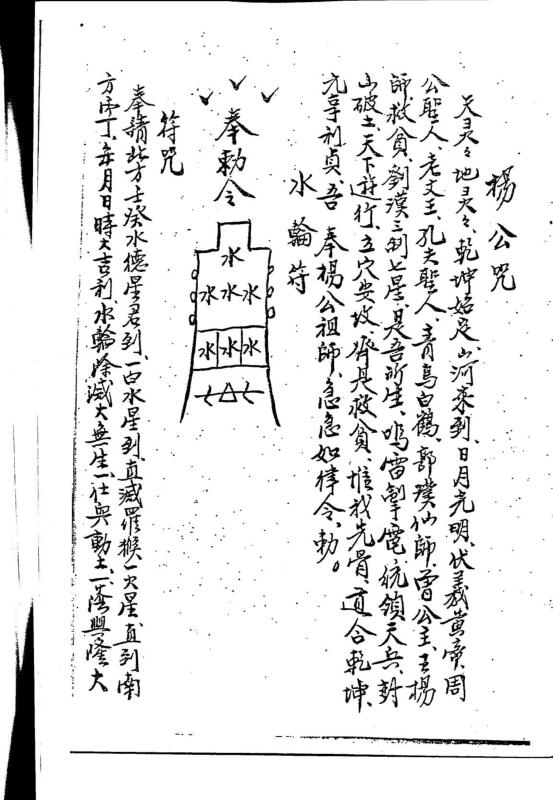 楊公咒
天灵々地灵々、乾坤始定、山河來到、日月光明、伏羲黃帝周
公聖人、老文王、孔夫聖人、青烏白鶴、郭璞仙師、曾公主、王楊
師救貧、劉漢三制七星、是吾所生、鳴雷掣電、統領天兵、封
山破土、天下遊行、五穴安坟、齊是救貧、惟我先骨、道合乾坤、
元亨利貞、吾奉楊公祖師、急急如律令、勅。
水輪符
奉勅令
水
水水水
水水水
符咒
奉請北方壬癸水德星君到、一白水星到、直滅羅猴一火星、直到南
方丙丁、年月日時大吉利、水輪除滅火無生、一任興動土、一蔭興隆大